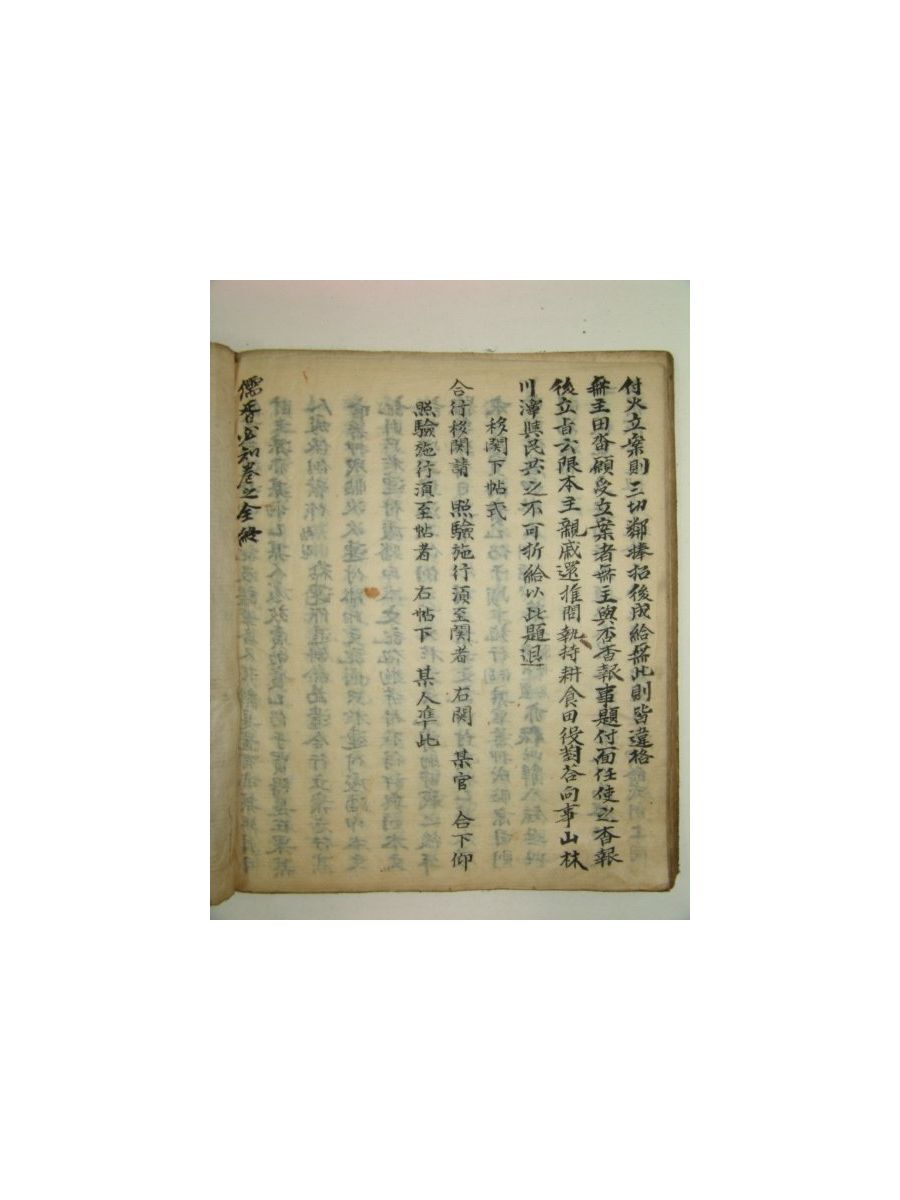 付火立案則三切鄰捧招後成給無此則皆違格
無主田畓願受立案者無主與否査報事題付面任使之査報
後立旨云限本主親戚還推間執持耕食田役對答向事山林
川澤與民共之不可折給以此題退
移関下帖式
合行移関請 照驗施行湏至関者 右関 某官 合下仰
照驗施行湏至帖者 右帖下 某人准此
儒胥必知卷之全終